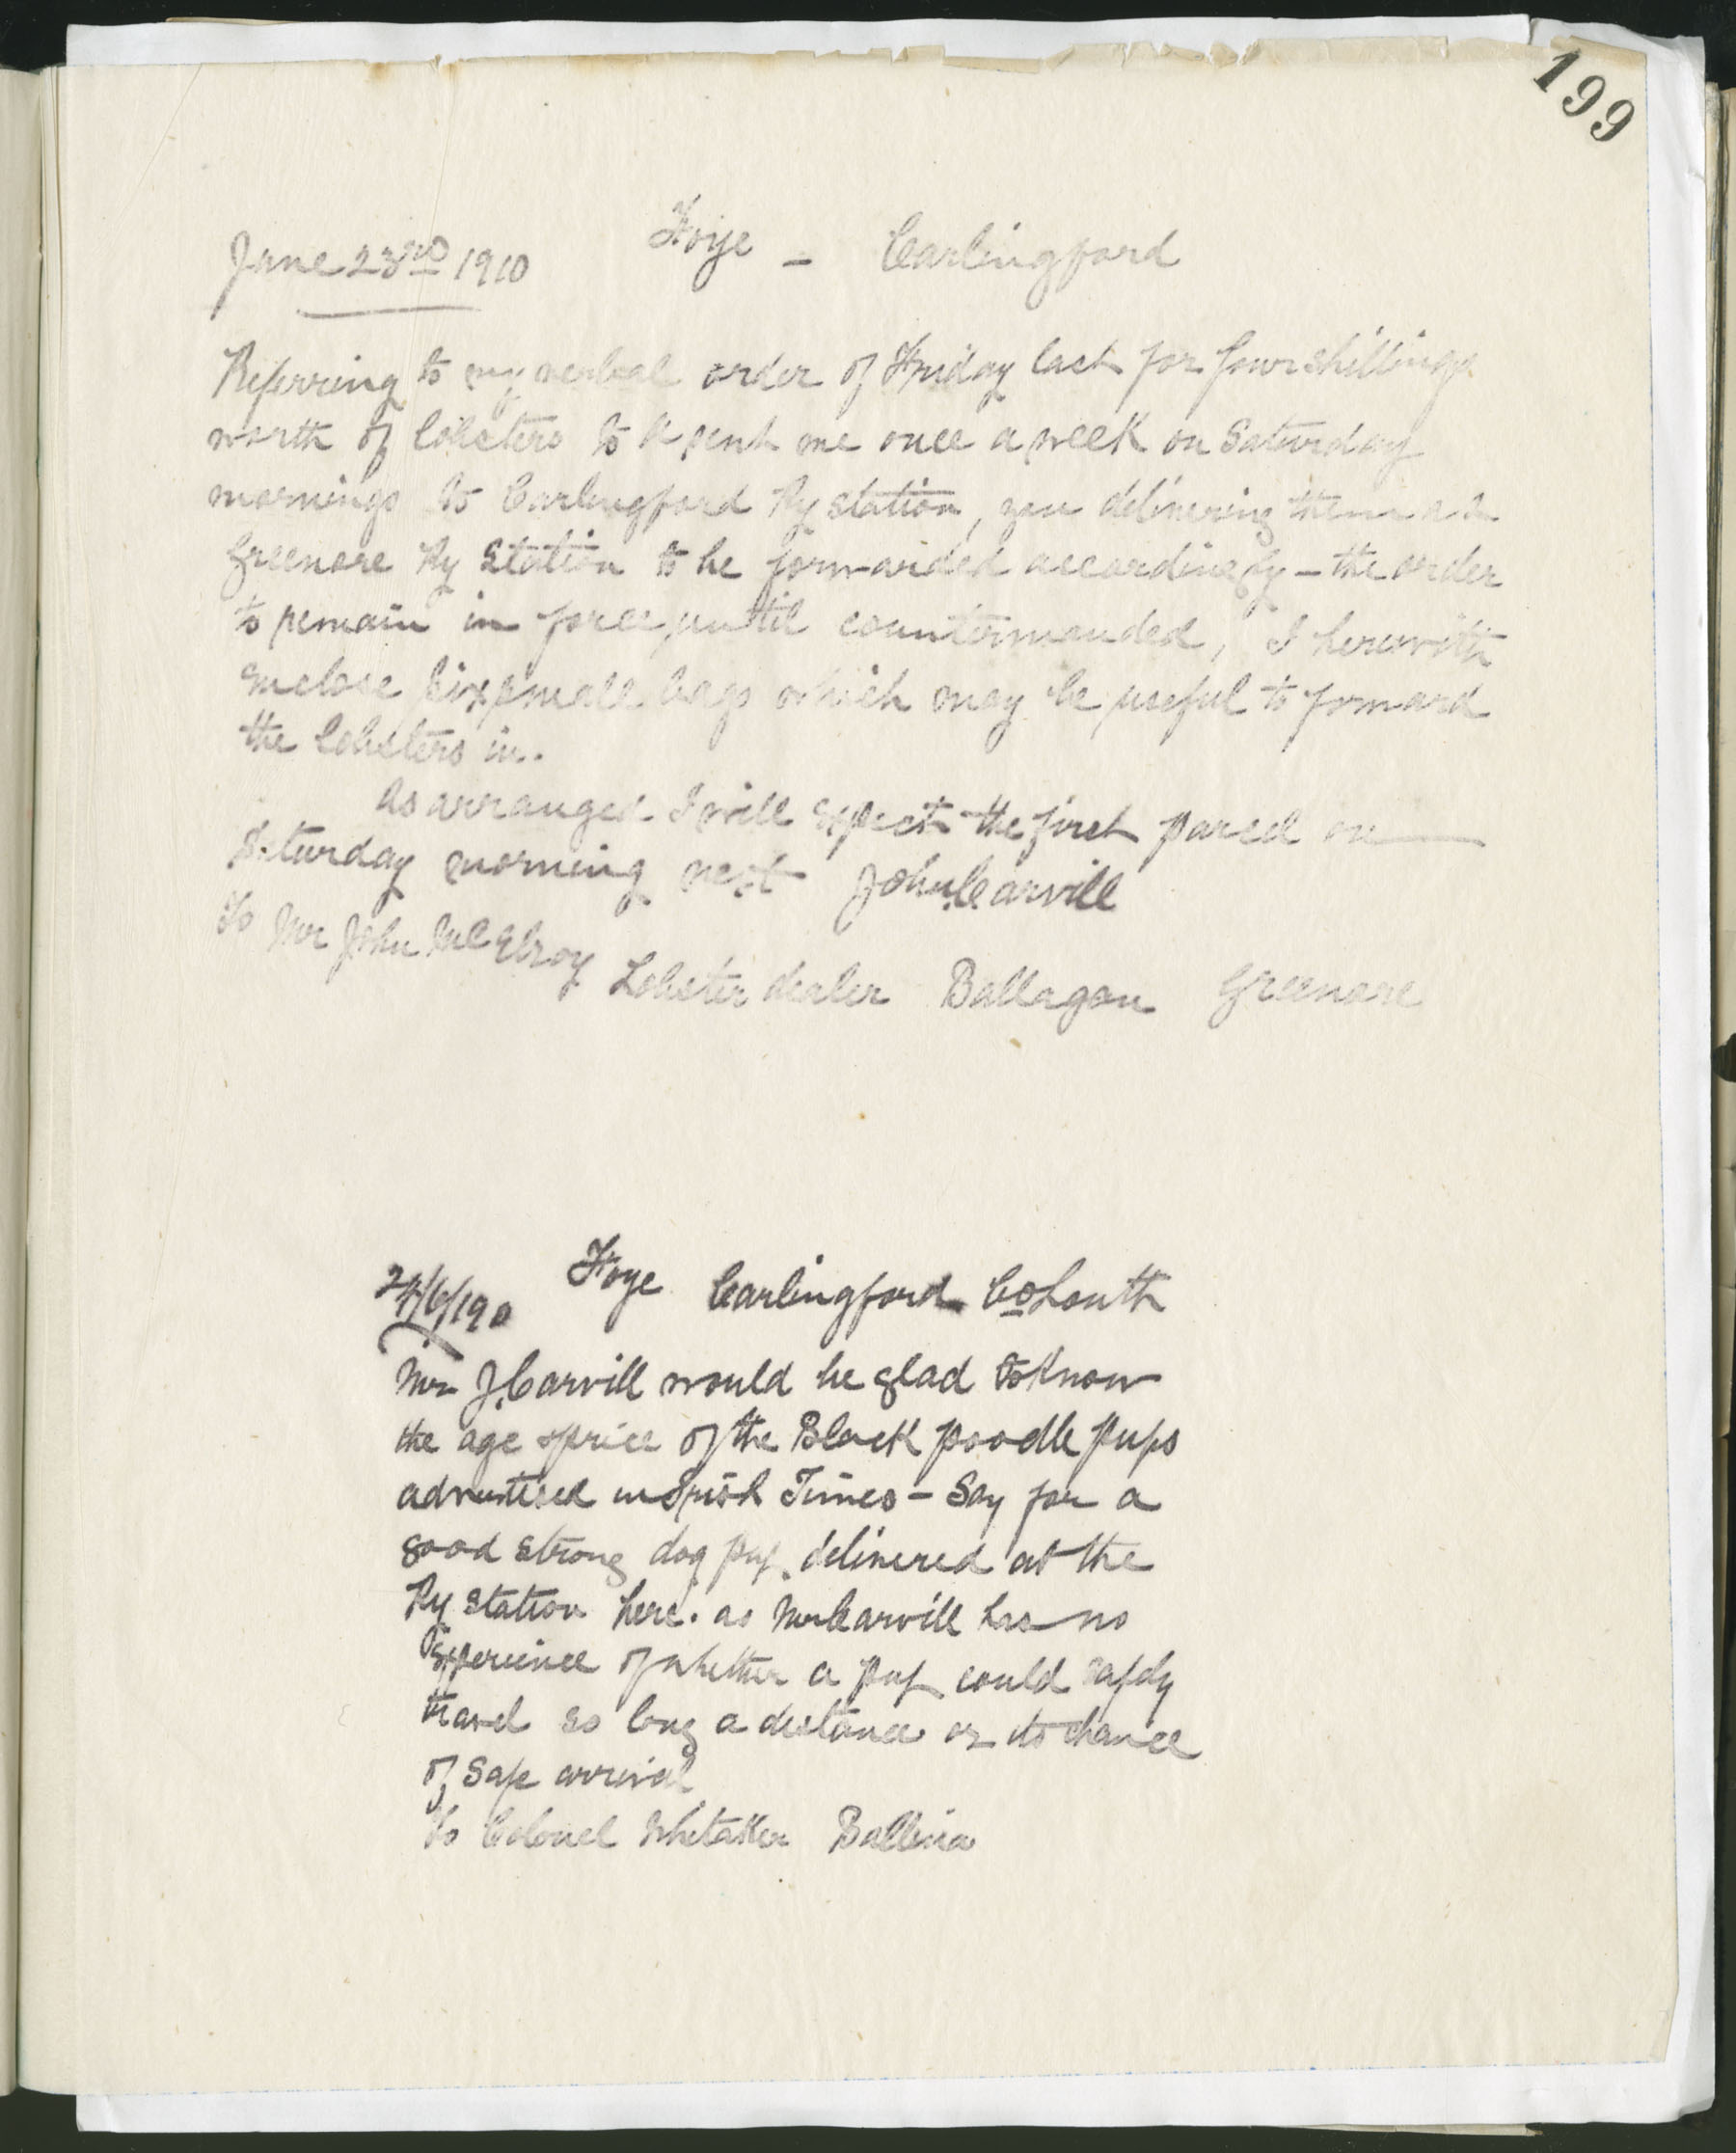 199
June 23RD 1910 Foye - Carlingford
Referring to my verbal order of Friday last for four shillings
worth of lobsters to be sent me once a week on Saturday
mornings to Carlingford Ry station, you delivering them at
Greenore Ry Station to be forwarded accordingly - the order
to remain in force until countermanded, I herewith
enclose six small bags which may be useful to forward
the lobsters in.
As arranged I will expect the first parcel on
Saturday morning next John Carvill
To Mr John McElroy Lobster dealer Ballagan Greenore
24/6/190 Foye Carlingford Co Louth
Mr J. Carvill would be glad to know
the age & price of the Black poodle pups
advertised in Irish Times - Say for a
good strong dog pup. delivered at the
Ry station here. as Mr Carvill has no
Experience of whether a pup could safely
travel so long a distance or its chance
of safe arrival
To Colonel Whitaker Ballina